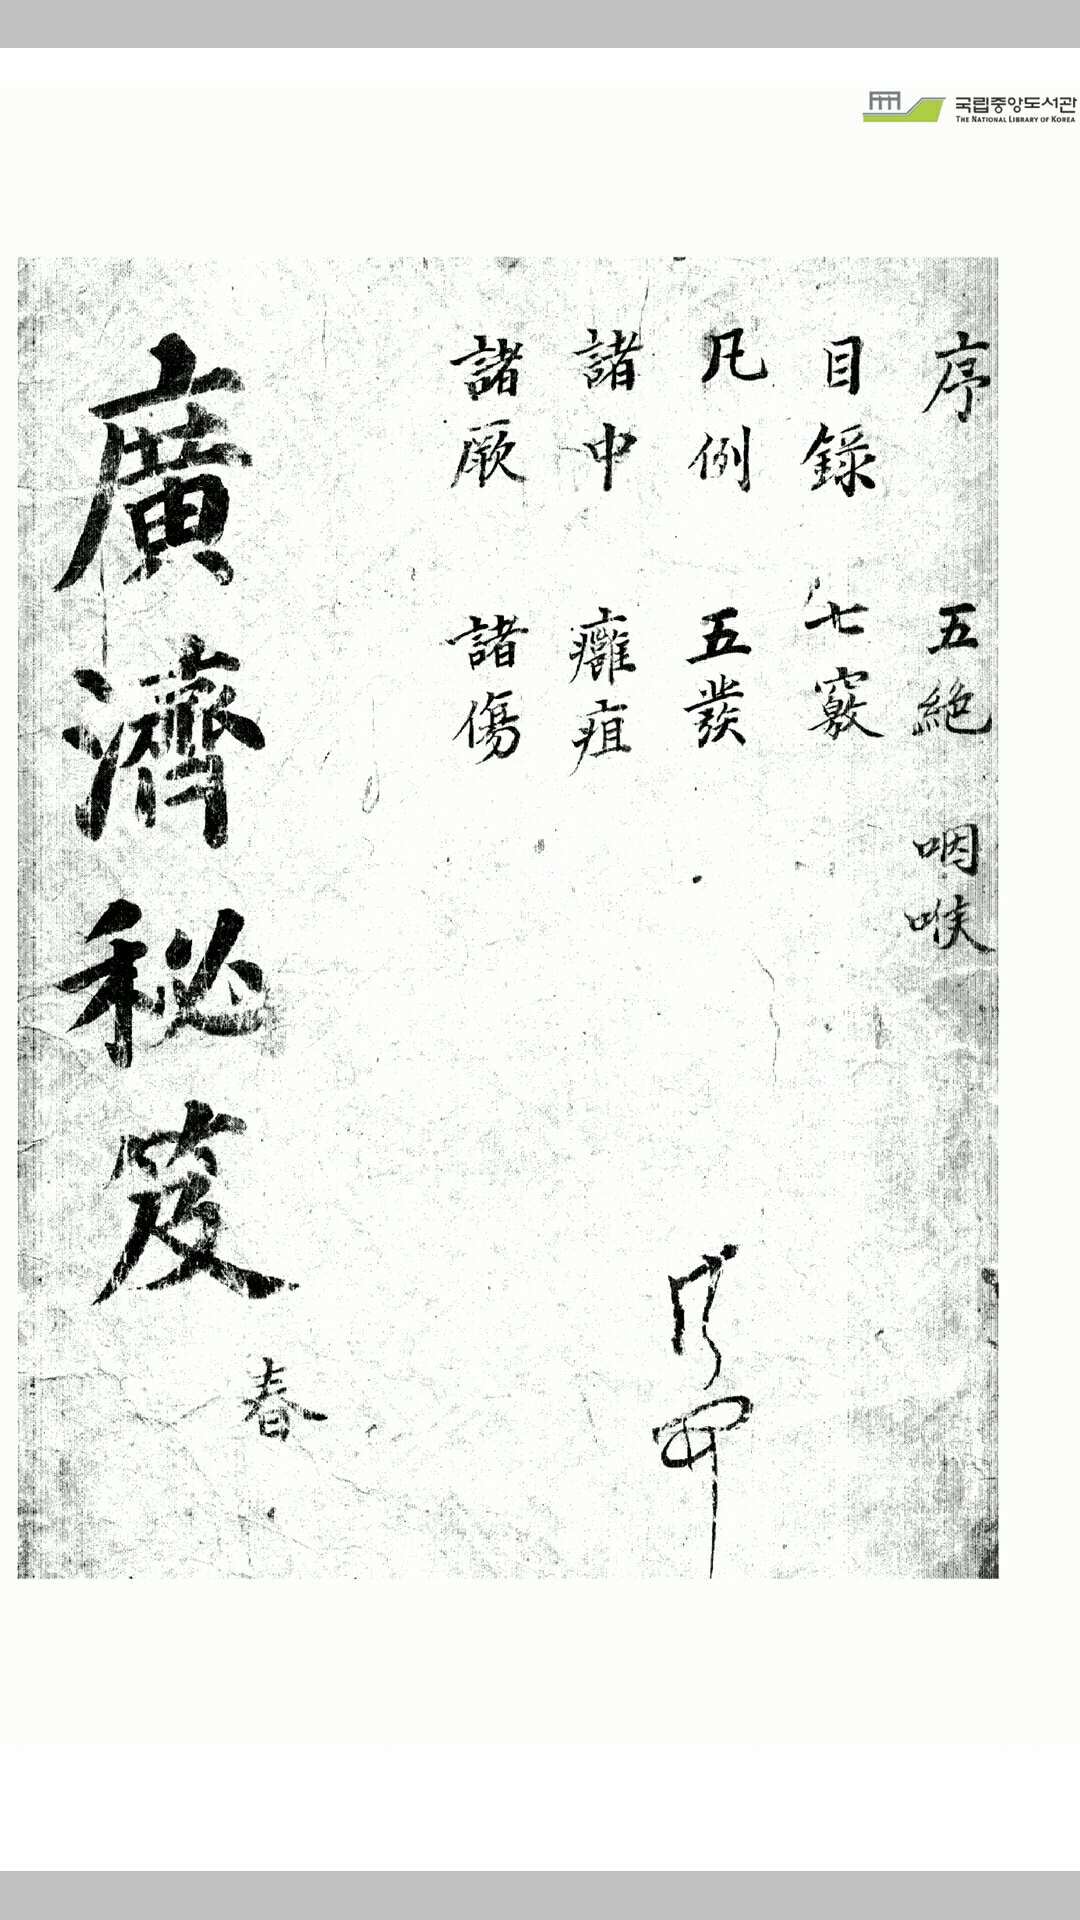 국립중앙도서관
THE NATIONAL LIBRARY OF KOREA
序 五絶 咽喉
目録 七竅
凡例 五發
諸中 癰疽
諸厥 諸傷
廣濟秘笈
春